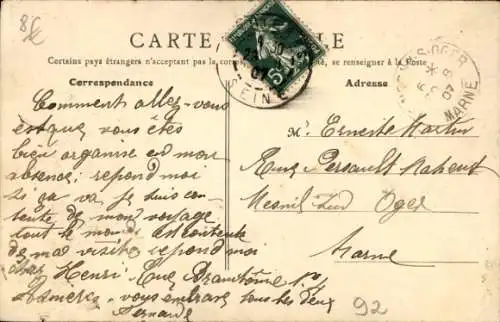 8€
CARTE LE
Certains pays étrangers n'acceptent pas la corres se renseigner à la Poste
Correspondance
Adresse
Comment allez-vous
est que vous êtes
bien organise en mon
absence; repond moi
si ça va je suis con-
tente de mon voyage
tout le monde est contente
de ma visite repond moi
chez Henri Rue Brantôme N°
vous embrasse tous les deux
Fernande
Mr Ernest Martin
Rue Persault
Mesnil sur Oger
Marne
5
SEINE
07
OGER
07
MARNE
92